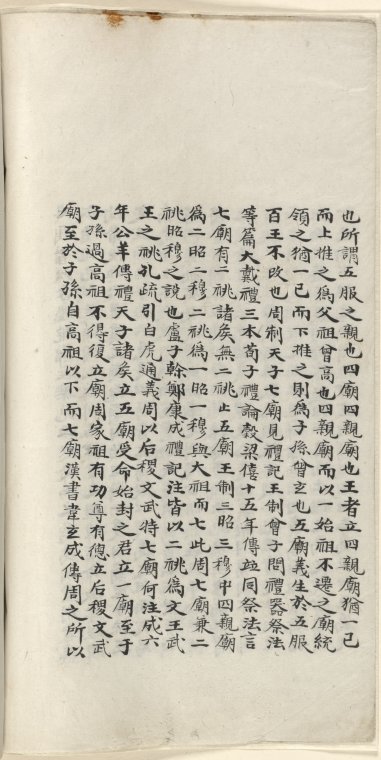 也所謂五服之親也四廟四親廟也王者立四親廟猶一己
而上推之為父祖曾高也四親廟而以一始祖不遷之廟統
領之猶一己而下推之則為子孫曾玄也五廟義生於五服
百王不改也周制天子七廟見禮記王制曾子問禮器祭法
等篇大戴禮三本荀子禮論穀梁僖十五年傳竝同祭法言
七廟有二祧諸矦無二祧止五廟王制三昭三穆中四親廟
為二昭二穆二祧為一昭一穆與大祖而七此周七廟兼二
祧昭穆之說也盧子榦鄭康成禮記注皆以二祧為文王武
王之祧孔疏引白虎通義周以后稷文武特七廟何注成六
年公羊傳禮天子諸矦立五廟受命始封之君立一廟至于
子孫過高祖不得復立廟周家祖有功尊有德立后稷文武
廟至於子孫自高祖以下而七廟漢書韋玄成傳周之所以